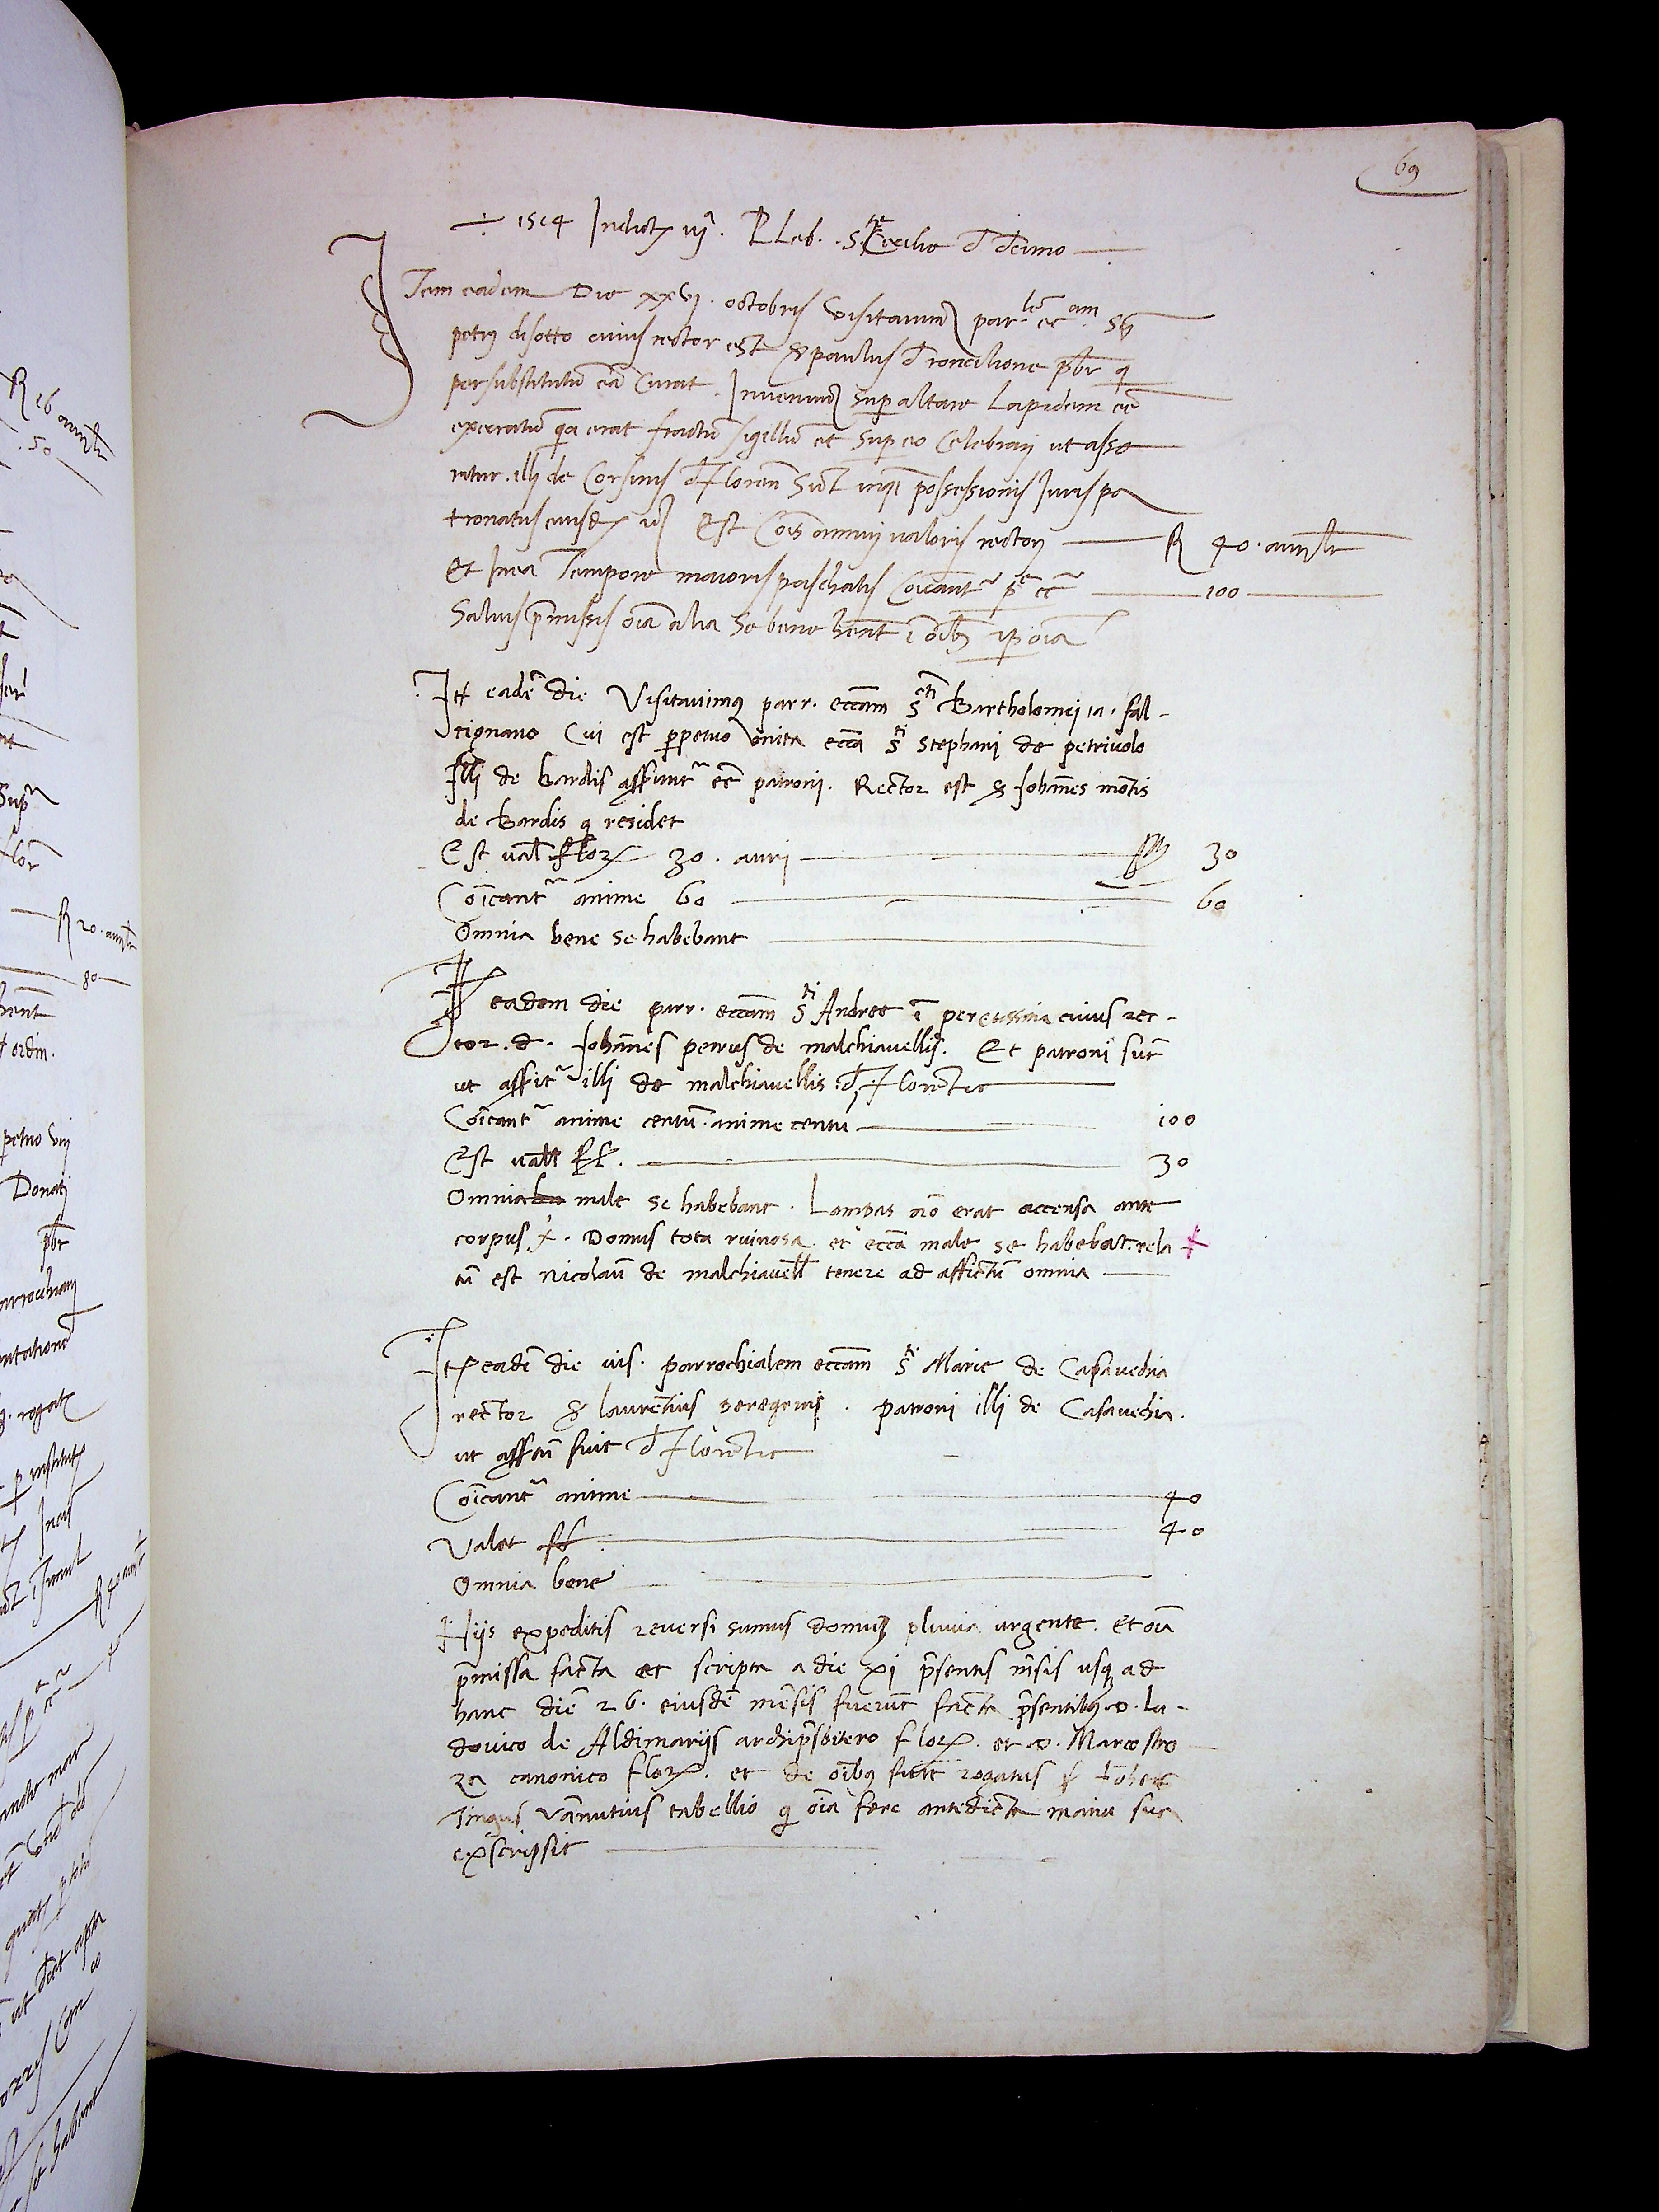 69
÷ 1514 Indict iij. Pleb. Ste Cecilie d decimo
Item eadem Die xxvi. octobris visitauimus par.lē ec.am S
petri disotto cuius rector est paulus d ronciliono pbr q
per substitutū eā Curat. Inuenimus sup altare Lapidem eē
execratum qa erat fractū sigillū et sup eo Celebrarj ut asse
ritur. illi de Corsinis d Floren Sūt in possessionis Juris pa
tronatus eiusdē Est Cōis annuj valoris rectorj R 40. aurj
Et In ea Tempore maioris paschatis Coicant 100
Saluis pmissis oīa alia se bene hent ī oībus oia
It eadē die Visitauimus parr. eccām Sti Bartholomej a. fal-
tignano Cui est ppetuo vnita eccā Sti Stephanj de petriuolo
Illi de Bardis assunt eē patronj. Rector est Johānes mōtis
de Bardis q residet
Est val floz 30. aurj 30
Coīcant anime 60 60
Omnia bene se habebant
It eadem die parr. eccām Sti Andree ī percussina cuius rec-
tor. d. Johānes petrus de malchiauellis. Et patroni sūt
ut assit illi de malchiauellis d Florētie
Coīcant anime centū. anime centū 100
Est vall ff. 30
Omnia male se habebant. Lampas nō erat accensa ante
corpus x. Domus tota ruinosa et eccā male se habebat. rela
tū est Nicolaū de malchiauell tenere ad affictū omnia
Itē eadē die vis. parrochialem eccām Ste Marie de Casauechia
rector laurētius peregrinj. patroni illi de Casauechia.
ut assūt fuit d Florētie
Coīcant anime 40
Valet ff. 40
Omnia bene
Hijs expeditis reuersi sumus domū pluuia urgente. Et oīa
pmissa facta et scripta a die xj psentis mēsis usq ad
hanc diē 26. eiusdē mēsis fuerūt facta psentibus d. lu-
douico de Aldimarijs archipsbitero floz. et d. Marco stro
za canonico floz. et de oībus fuit rogatus
Vānutius tabellio q oīa fere antedicta manu sua
exscripsit